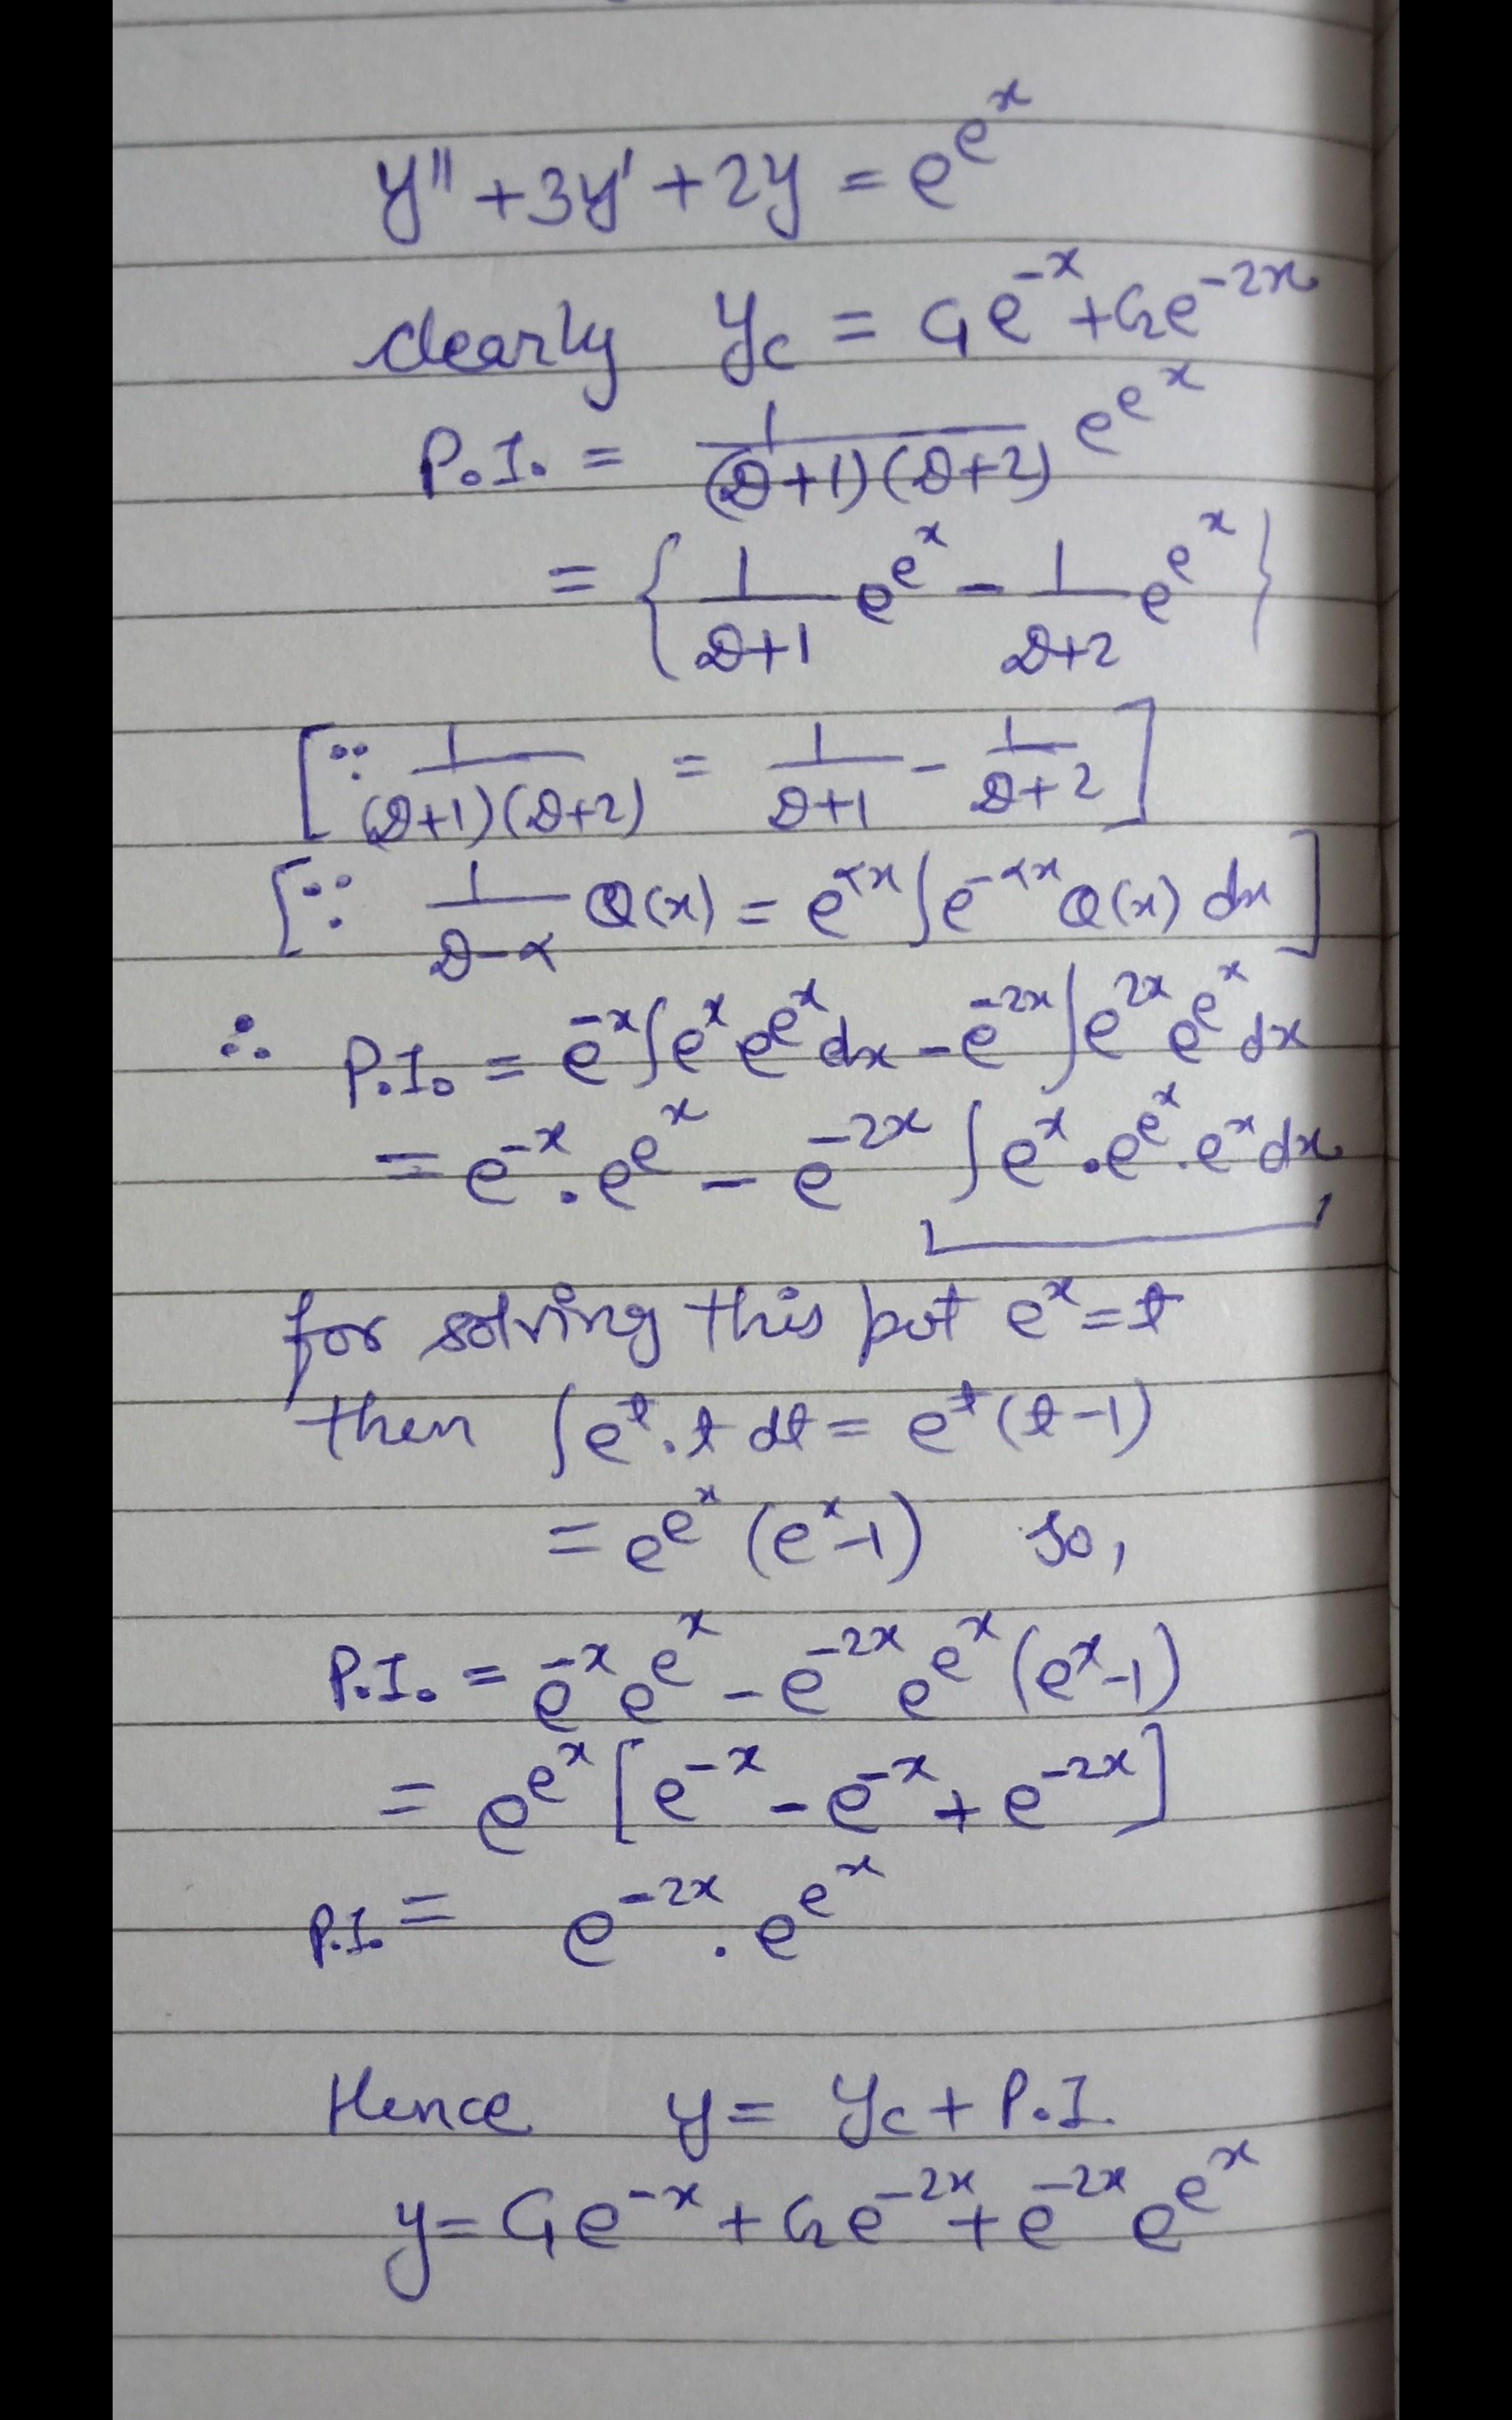 y'' + 3y' + 2y = e^{e^x}
clearly y_c = C₁e^{-x} + C₂e^{-2x}
P.I. = \frac{1}{(D+1)(D+2)} e^{e^x}
= { \frac{1}{D+1} e^{e^x} - \frac{1}{D+2} e^{e^x} }
[∵ \frac{1}{(D+1)(D+2)} = \frac{1}{D+1} - \frac{1}{D+2} ]
[∵ \frac{1}{D-α} Q(x) = e^{αx} ∫ e^{-αx} Q(x) dx ]
∴ P.I. = e^{-x} ∫ e^x e^{e^x} dx - e^{-2x} ∫ e^{2x} e^{e^x} dx
= e^{-x} . e^{e^x} - e^{-2x} ∫ e^x . e^{e^x} . e^x dx
for solving this put e^x = t
then ∫ e^t . t dt = e^t (t-1)
= e^{e^x} (e^x - 1) so,
P.I. = e^{-x} e^{e^x} - e^{-2x} e^{e^x} (e^x - 1)
= e^{e^x} [ e^{-x} - e^{-x} + e^{-2x} ]
P.I. = e^{-2x} . e^{e^x}
Hence y = y_c + P.I.
y = C₁e^{-x} + C₂e^{-2x} + e^{-2x} e^{e^x}